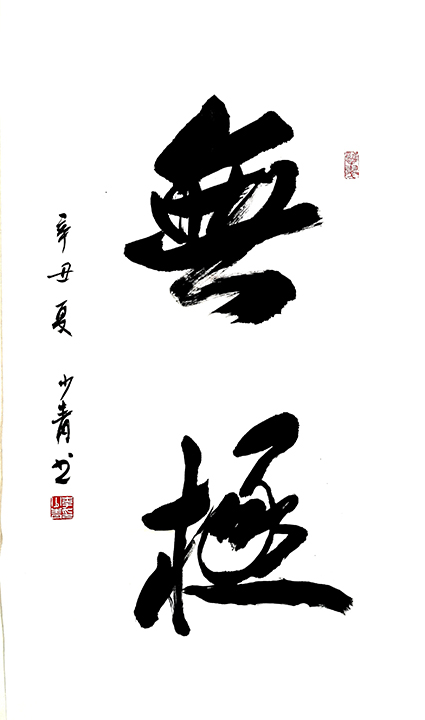 無極
辛丑夏 少青书